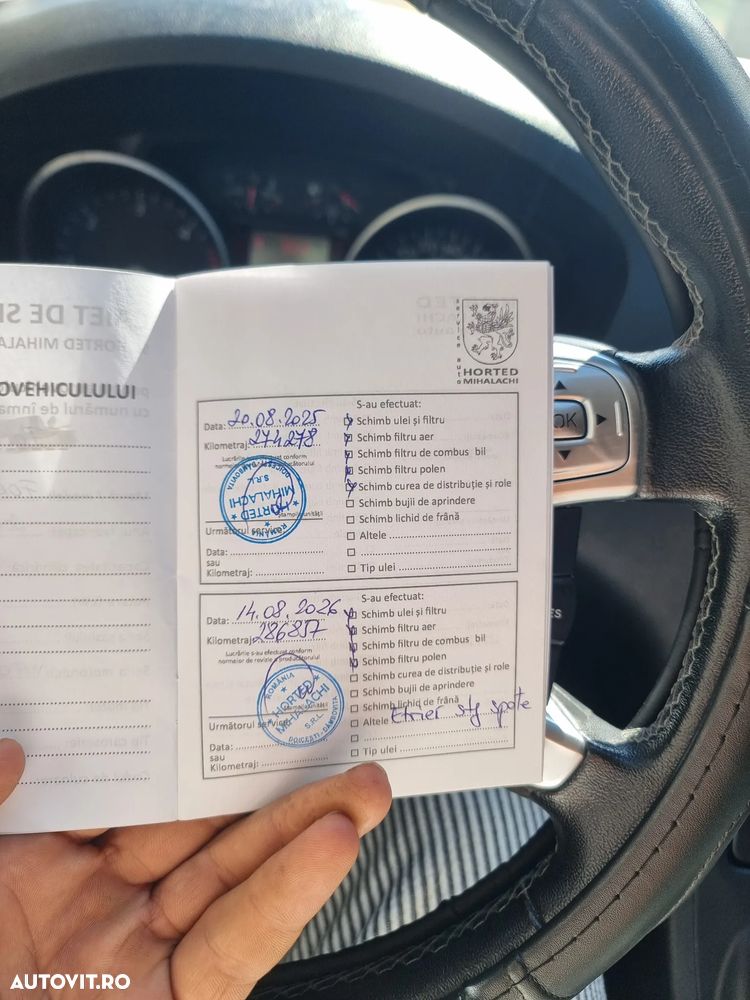 OVEHICULULUI
service auto
HORTED
MIHALACHI
S-au efectuat:
Data: 20.08.2025
Kilometraj: 274278
Schimb ulei și filtru
Schimb filtru aer
Schimb filtru de combus bil
Schimb filtru polen
Schimb curea de distribuție și role
Schimb bujii de aprindere
Schimb lichid de frână
Altele
Tip ulei
Lucrările s-au efectuat conform
normelor de revizie a producătorului
ROMÂNIA
HORTED
MIHALACHI
S.R.L.
DOICEȘTI-DÂMBOVIȚA
Următorul service
Data:
sau
Kilometraj:
S-au efectuat:
Data: 14.08.2026
Kilometraj: 286857
Schimb ulei și filtru
Schimb filtru aer
Schimb filtru de combus bil
Schimb filtru polen
Schimb curea de distribuție și role
Schimb bujii de aprindere
Schimb lichid de frână
Altele Etrier stg spate
Tip ulei
Lucrările s-au efectuat conform
normelor de revizie a producătorului
ROMÂNIA
HORTED
MIHALACHI
S.R.L.
DOICEȘTI-DÂMBOVIȚA
Următorul service
Data:
sau
Kilometraj:
OK
AUTOVIT.RO